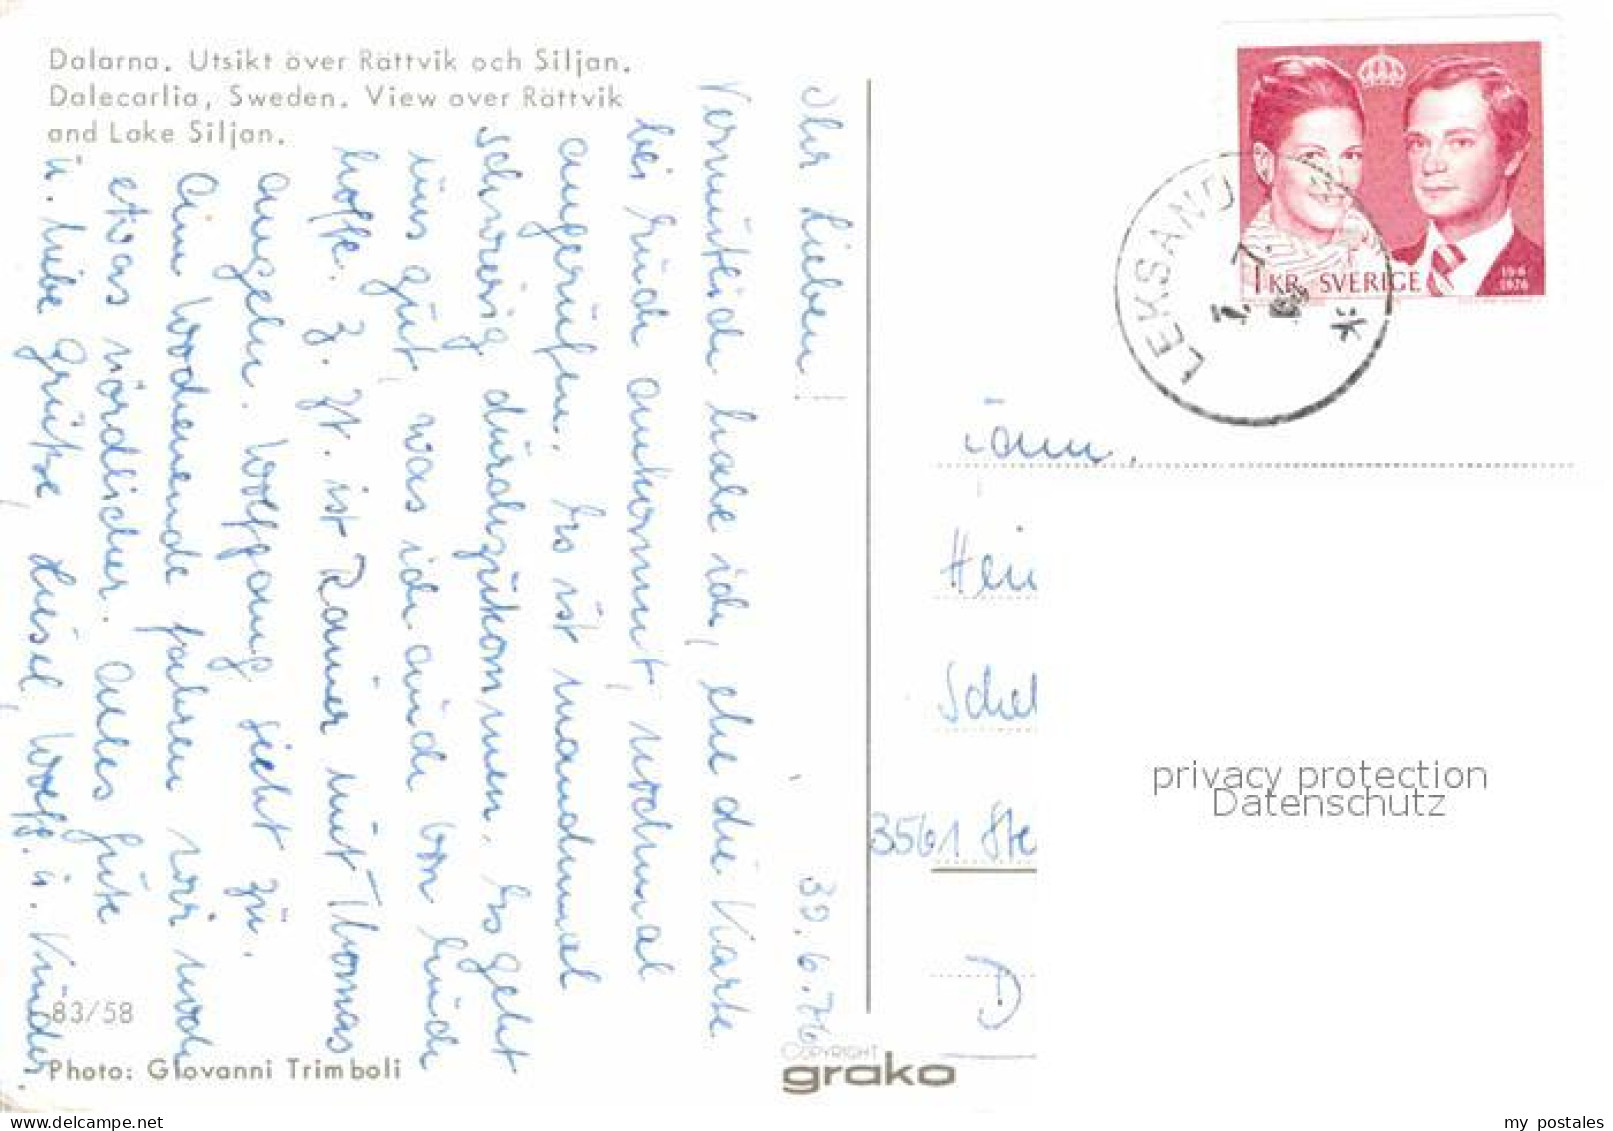 Dalarna. Utsikt över Rättvik och Siljan.
Dalecarlia, Sweden. View over Rättvik
and Lake Siljan.
30.6.76
Ihr Lieben!
Vermutlich habe ich, ehe die Karte
bei Euch ankommt, nochmal
angerufen. Es ist manchmal
schwierig durchzukommen. Es geht
uns gut, was ich auch von Euch
hoffe. Z. Zt. ist Rainer mit Thomas
angeln. Wolfgang sieht zu.
Am Wochenende fahren wir noch
etwas nördlicher. Alles Gute
u. liebe Grüße Liesel, Wolfg. u. Kinder.
83/58
Photo: Giovanni Trimboli
COPYRIGHT
grako
1 KR SVERIGE
19 6
1976
LEKSAND
Fam.
Hein
Schel
3561 Ste
D
privacy protection
Datenschutz
delcampe.net
my_postales